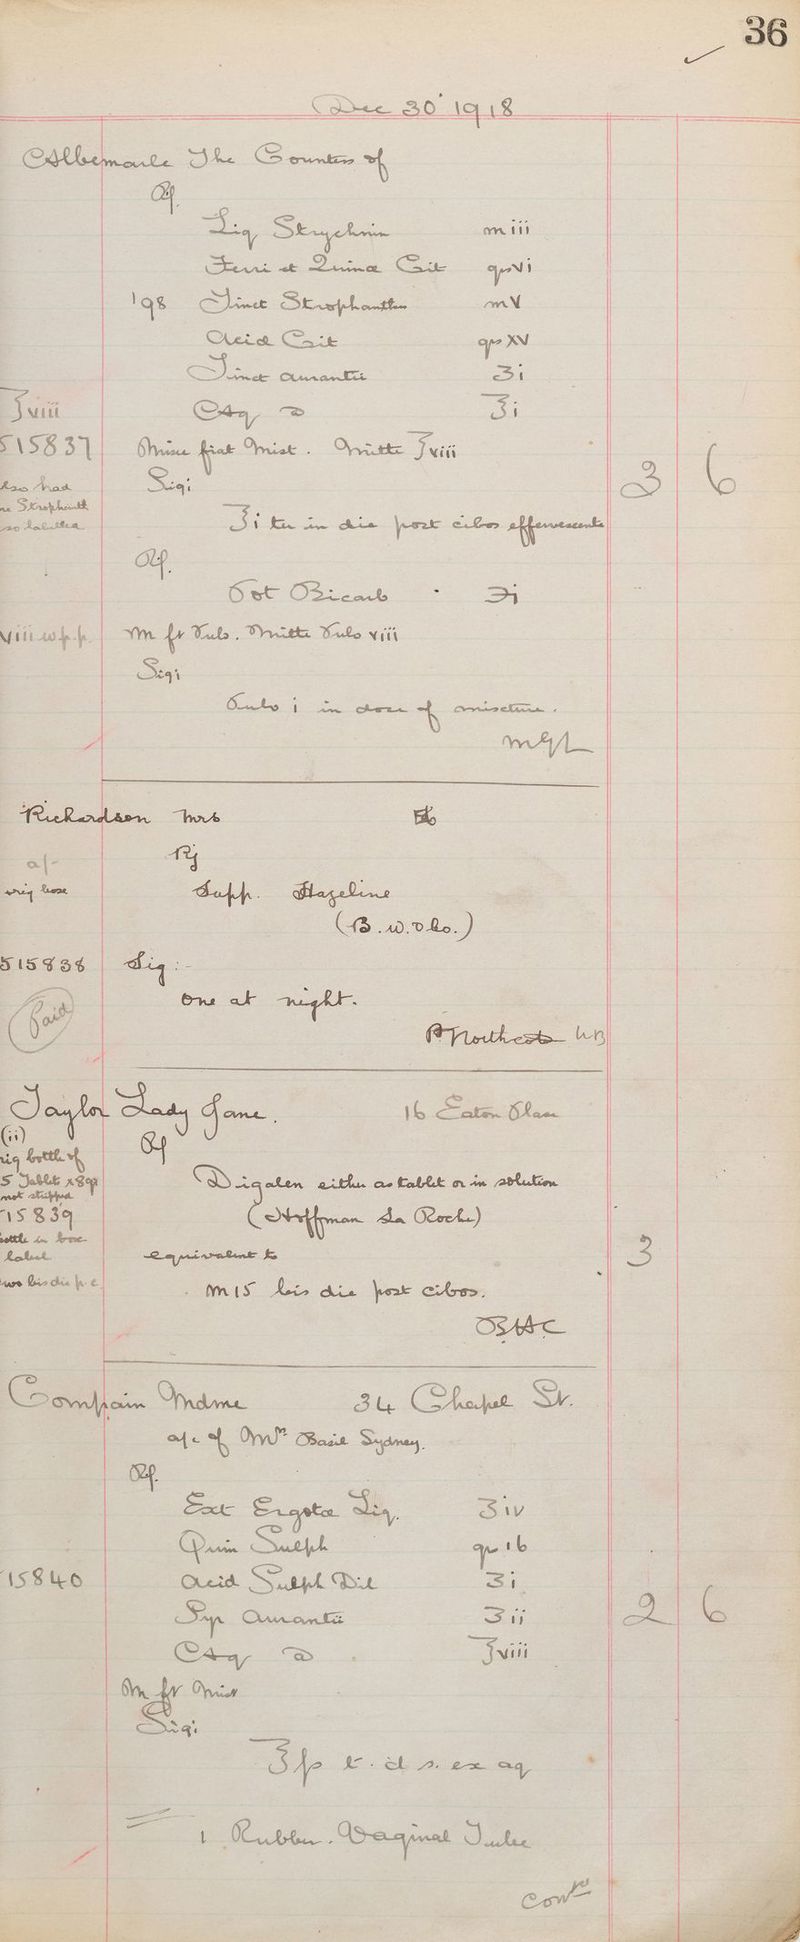 36
Dec 30 1918
Albemarle The Countess of
Rp.
Liq Strychnin m iii
Ferri et Quinæ Cit grs vi
'98 Tinct Strophanthus m v
Acid Cit grs xv
Tinct Aurantii ʒi
℥viii Aq ℥i
515837 Misce fiat Mist. Mitte ℥viii
also had Sig: 3 6
Strophanth
so labelled ℥i ter in die post cibos effervescente
Rp.
Pot Bicarb ℈i
viii w.p.p. M ft Pulv. Mitte Pulv viii
Sig:
Pulv i in dose of mixture.
MGL
Richardson Mrs
a/- Rj
orig box Supp. Hazeline
(B. W. & Co.)
515838 Sig:-
Paid one at night.
Northcote HB
Taylor Lady Jane. 16 Eaton Place
(ii) Rp
orig bottle of
5 Tablets x 8grs Digalen either as tablet or in solution
not stripped
15839 (Hoffman La Roche)
bottle in box
label equivalent to 3
two bis die p.c. m 15 bis die post cibos.
BHC
Compain Mdme 34 Chapel St.
a/c of Mrs Basil Sydney.
Rp.
Ext Ergotæ Liq. ʒiv
Quin Sulph gr 16
15840 Acid Sulph Dil ʒi
Syr Aurantii ʒii 2 6
Aq ℥viii
M ft Mist
Sig:
℥ß t.d.s. ex aq
1 Rubber. Vaginal Tube